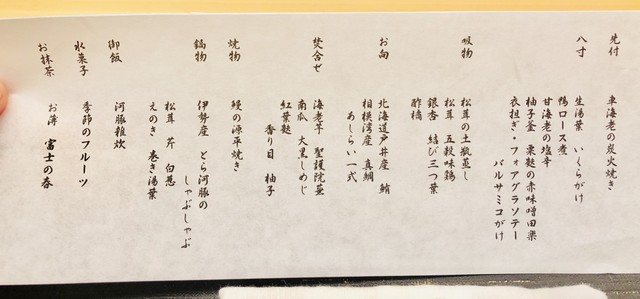 先付
車海老の炭火焼き
八寸
生湯葉 いくらがけ
鴨ロース煮
甘海老の塩辛
柚子釜 粟麩の赤味噌田楽
衣担ぎ・フォアグラソテー
バルサミコがけ
吸物
松茸の土瓶蒸し
松茸 五穀味鶏
銀杏 結び三つ葉
酢橘
お向
北海道戸井産 鮪
相模湾産 真鯛
あしらい一式
焚合せ
海老芋 聖護院蕪
南瓜 大黒しめじ
紅葉麩
香り目 柚子
焼物
鰻の源平焼き
鍋物
伊勢産 とら河豚の
しゃぶしゃぶ
松茸 芹 白葱
えのき 巻き湯葉
御飯
河豚雑炊
水菓子
季節のフルーツ
お抹茶
お薄 富士の春